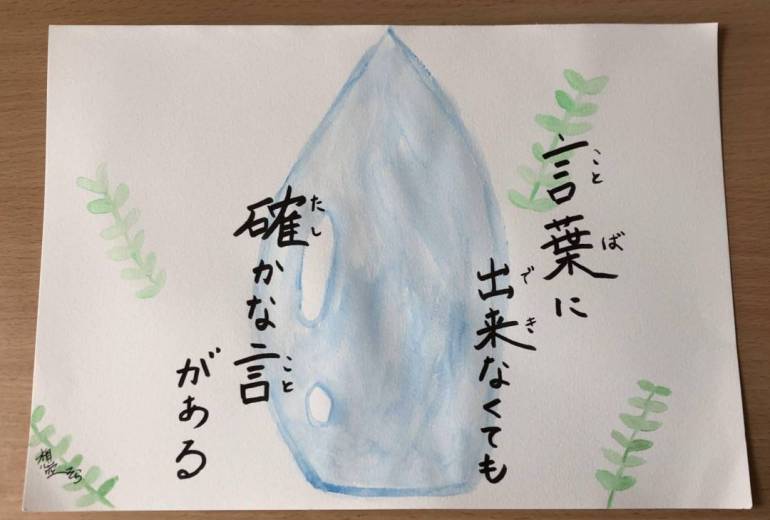 言葉に
出来なくても
確かな言
がある
ことば
でき
たし
こと